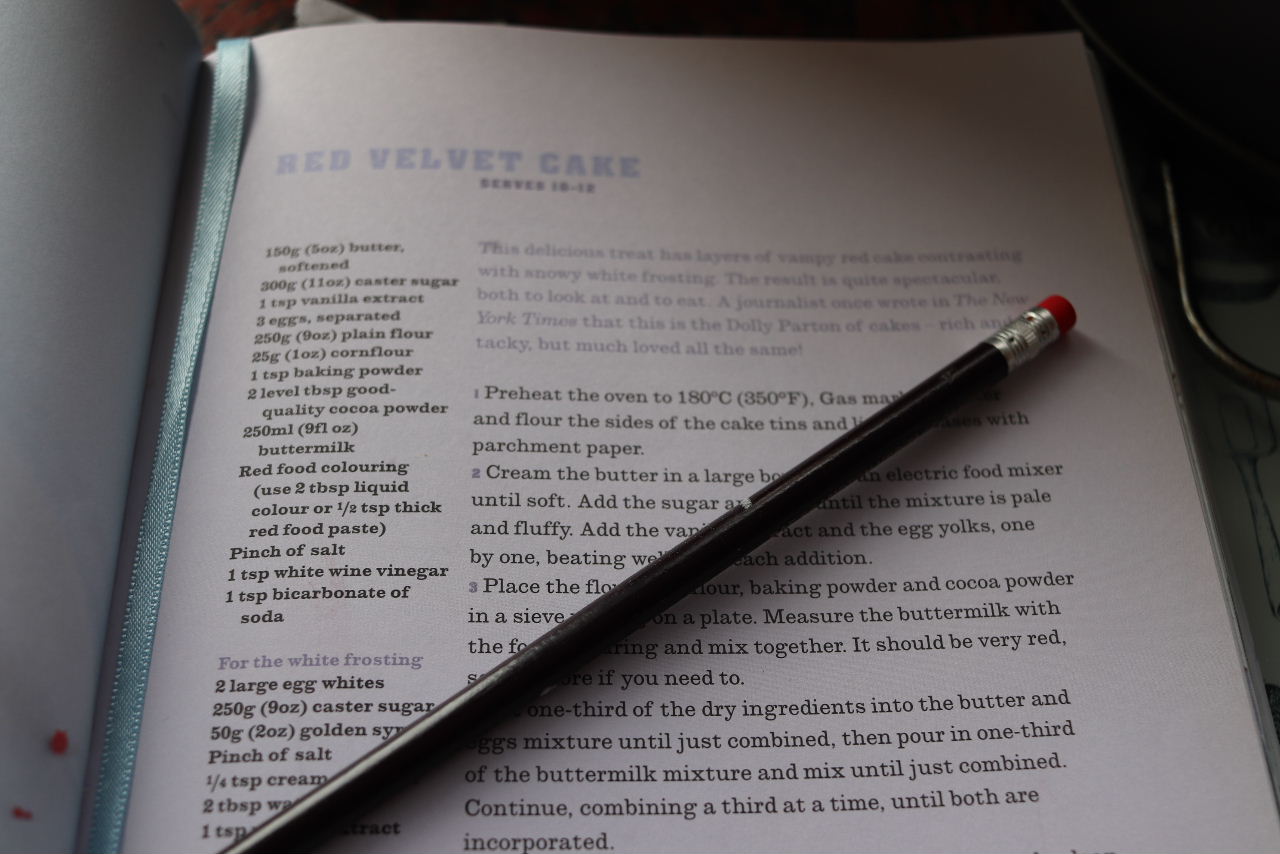 RED VELVET CAKE
SERVES 10-12
150g (5oz) butter,
softened
300g (11oz) caster sugar
1 tsp vanilla extract
3 eggs, separated
250g (9oz) plain flour
25g (1oz) cornflour
1 tsp baking powder
2 level tbsp good-
quality cocoa powder
250ml (9fl oz)
buttermilk
Red food colouring
(use 2 tbsp liquid
colour or ½ tsp thick
red food paste)
Pinch of salt
1 tsp white wine vinegar
1 tsp bicarbonate of
soda
For the white frosting
2 large egg whites
250g (9oz) caster sugar
50g (2oz) golden
Pinch of salt
¼ tsp cream
2 tbsp
1 tsp
This delicious treat has layers of vampy red cake contrasting
with snowy white frosting. The result is quite spectacular,
both to look at and to eat. A journalist once wrote in The New
York Times that this is the Dolly Parton of cakes – rich and
tacky, but much loved all the same!
1 Preheat the oven to 180°C (350°F), Gas
and flour the sides of the cake tins and with
parchment paper.
2 Cream the butter in a large an electric food mixer
until soft. Add the sugar until the mixture is pale
and fluffy. Add the and the egg yolks, one
by one, beating each addition.
3 Place the baking powder and cocoa powder
in a sieve on a plate. Measure the buttermilk with
the and mix together. It should be very red,
if you need to.
one-third of the dry ingredients into the butter and
eggs mixture until just combined, then pour in one-third
of the buttermilk mixture and mix until just combined.
Continue, combining a third at a time, until both are
incorporated.